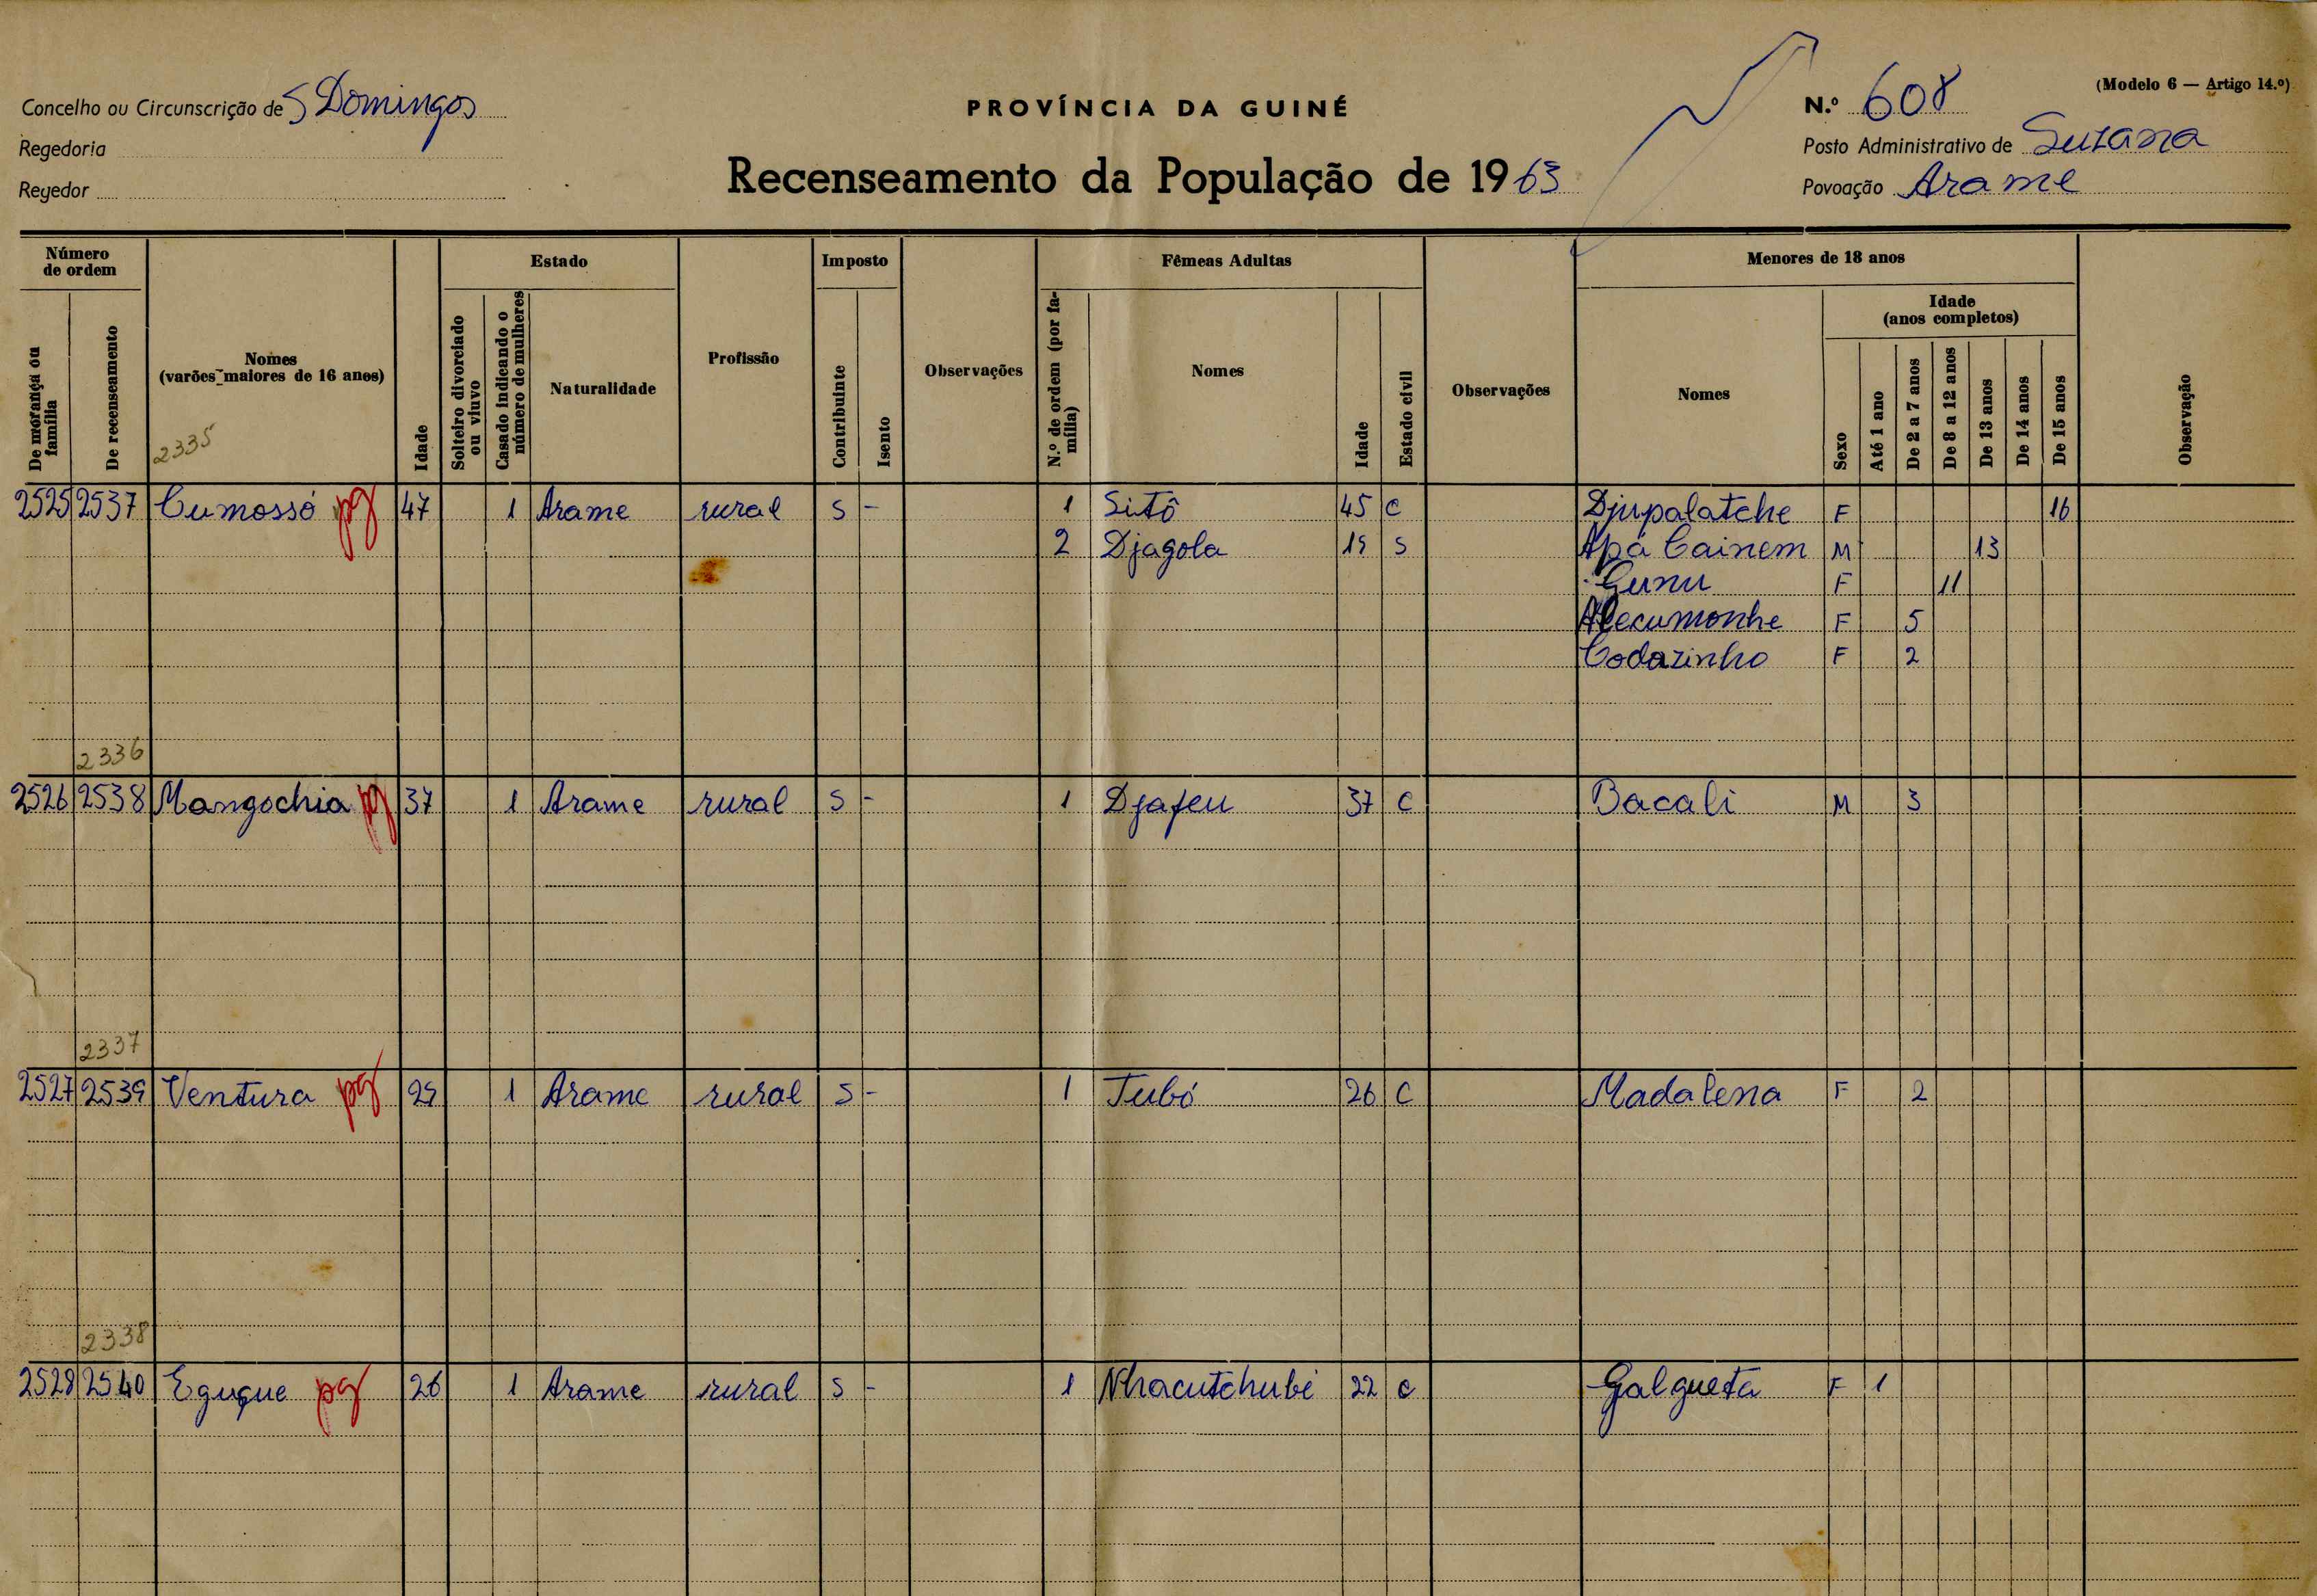 (Modelo 6 — Artigo 14.º)
Concelho ou Circunscrição de S Domingos
PROVÍNCIA DA GUINÉ
N.º 608
Regedoria
Posto Administrativo de Suzana
Regedor
Recenseamento da População de 1963
Povoação Arame
Número de ordem
Estado
Imposto
Fêmeas Adultas
Menores de 18 anos
Idade (anos completos)
De morança ou família
De recenseamento
Nomes (varões maiores de 16 anos)
Idade
Solteiro divorciado ou viuvo
Casado indicando o número de mulheres
Naturalidade
Profissão
Contribuinte
Isento
Observações
N.º de ordem (por família)
Nomes
Idade
Estado civil
Observações
Nomes
Sexo
Até 1 ano
De 2 a 7 anos
De 8 a 12 anos
De 13 anos
De 14 anos
De 15 anos
Observação
2335
2525 2537 Cumossó pg 47 1 Arame rural S - 1 Sitô 45 C Djupalatche F 16
2 Djagola 19 S Apá Cainem M 13
Gunu F 11
Alecumonhe F 5
Codazinho F 2
2336
2526 2538 Mangochia pg 37 1 Arame rural S - 1 Djafeu 37 C Bacali M 3
2337
2527 2539 Ventura pg 29 1 Arame rural S - 1 Tubó 26 C Madalena F 2
2338
2528 2540 Eguque pg 26 1 Arame rural S - 1 Nhacutchubé 22 C Galgueta F 1